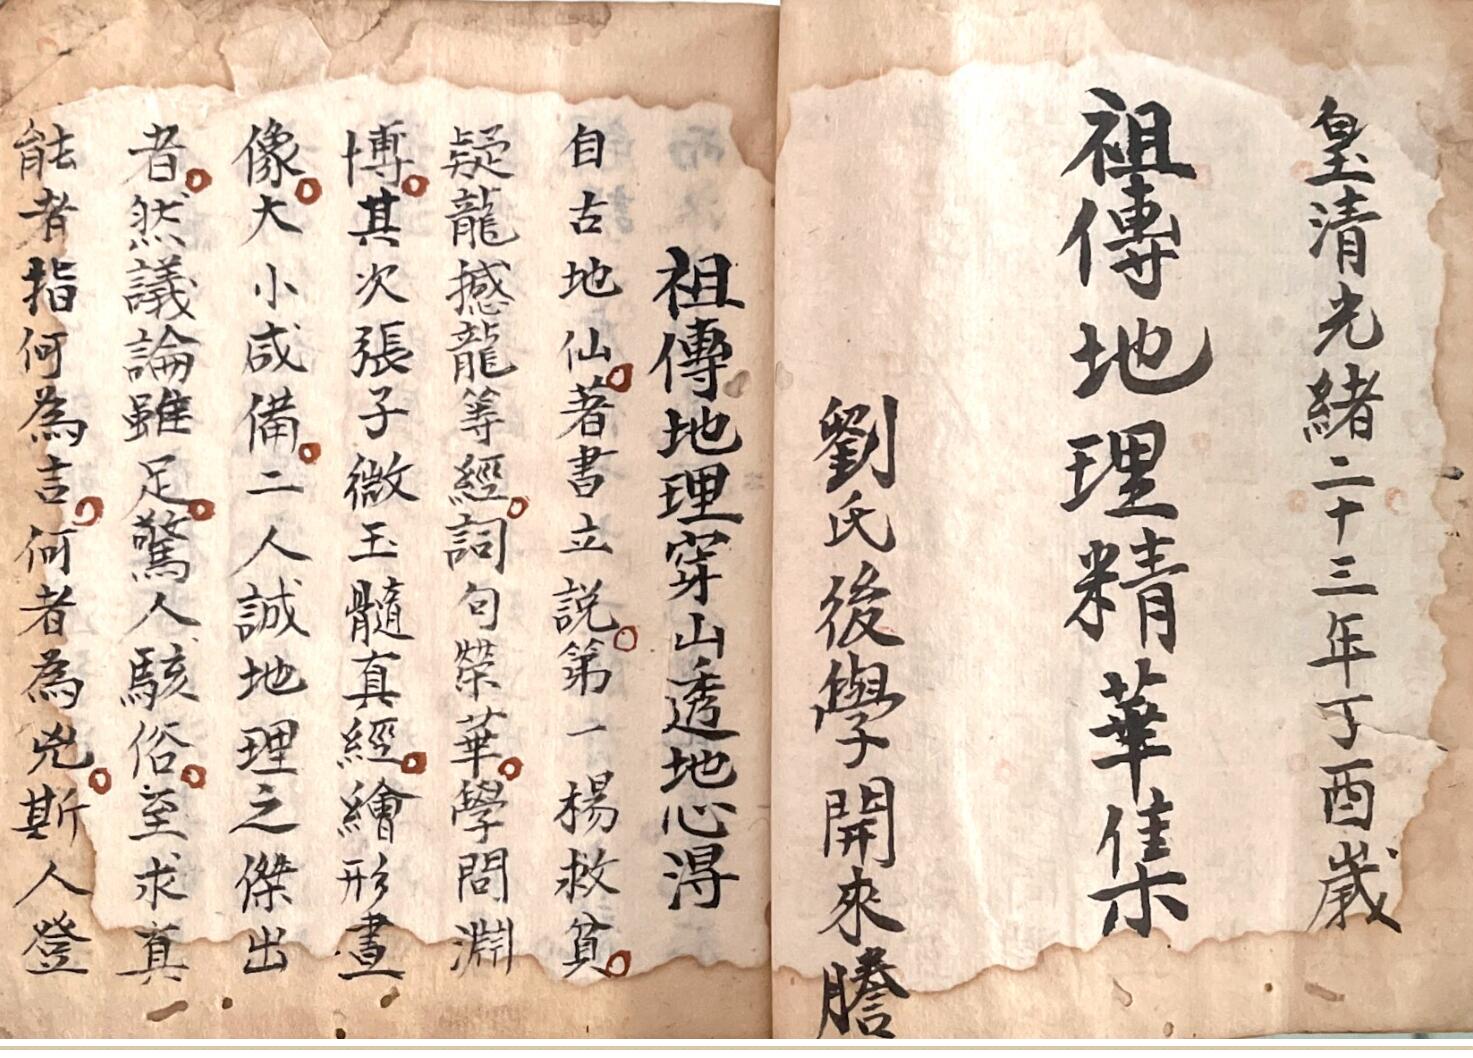 皇清光緒二十三年丁酉歲
祖傳地理精華集
劉氏後學開來謄
祖傳地理穿山透地心淂
自古地仙著書立説第一楊救貧
疑龍撼龍等經詞句榮華學問淵
博其次張子微玉髓真經繪形畫
像大小咸備二人誠地理之傑出
者然議論雖足驚人駭俗至求真
能者指何為吉何者為兇斯人登